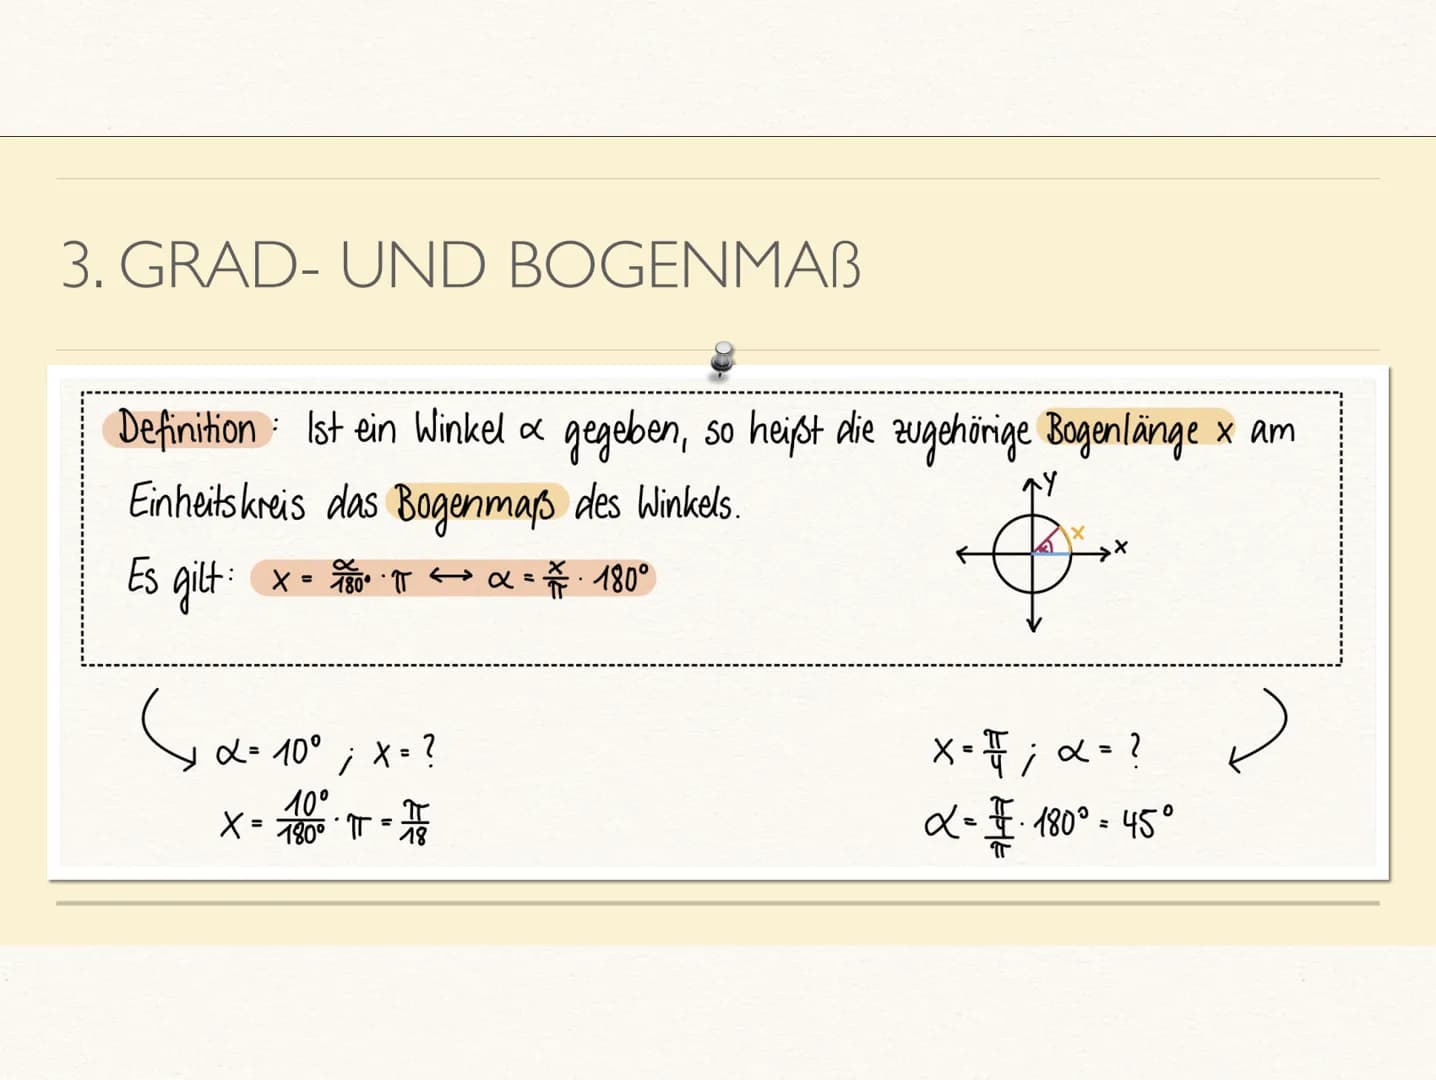 3. GRAD- UND BOGENMAß
Definition: Ist ein Winkel α gegeben, so heißt die zugehörige Bogenlänge x am
Einheitskreis das Bogenmaß des Winkels.
y
x
α
x
Es gilt: x = α/180° · π ↔ α = x/π · 180°
α = 10° ; x = ?
x = 10°/180° · π = π/18
x = π/4 ; α = ?
α = π/4/π · 180° = 45°